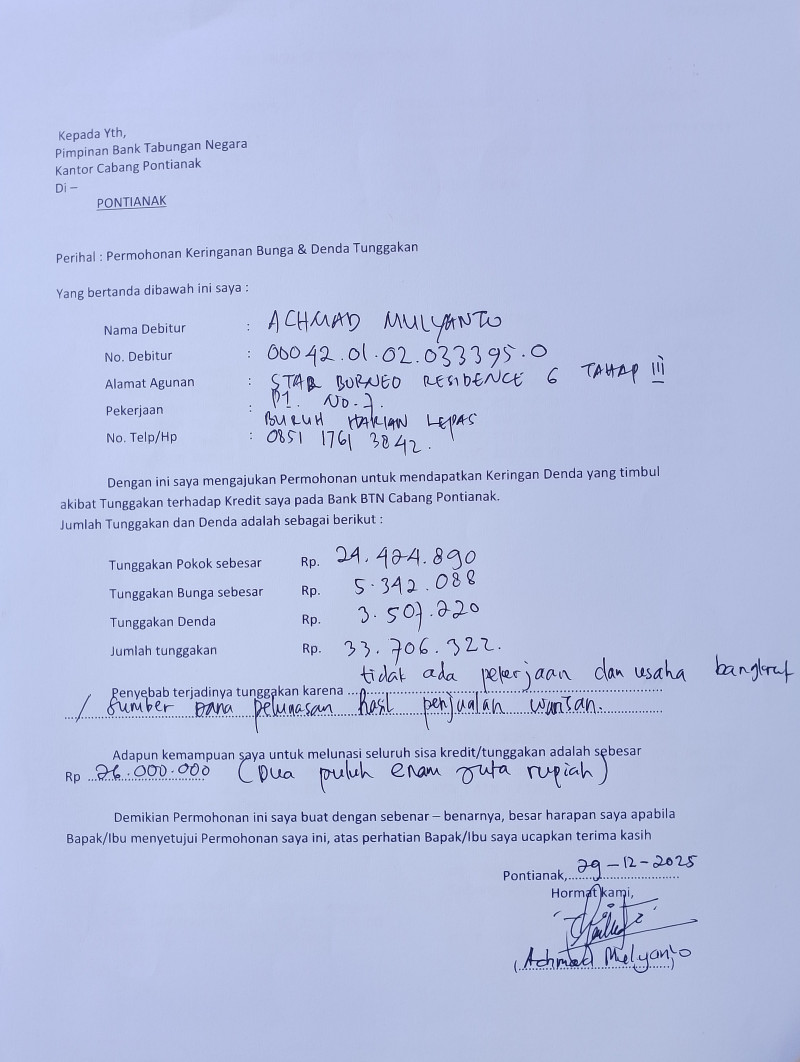 Kepada Yth,
Pimpinan Bank Tabungan Negara
Kantor Cabang Pontianak
Di –
PONTIANAK
Perihal : Permohonan Keringanan Bunga & Denda Tunggakan
Yang bertanda dibawah ini saya :
Nama Debitur : ACHMAD MULYANTO
No. Debitur : 00042.01.02.033395.0
Alamat Agunan : STAR BORNEO RESIDENCE 6 TAHAP III
D1. NO.7.
Pekerjaan : BURUH HARIAN LEPAS
No. Telp/Hp : 0851 1761 3842.
Dengan ini saya mengajukan Permohonan untuk mendapatkan Keringan Denda yang timbul
akibat Tunggakan terhadap Kredit saya pada Bank BTN Cabang Pontianak.
Jumlah Tunggakan dan Denda adalah sebagai berikut :
Tunggakan Pokok sebesar Rp. 24.424.890
Tunggakan Bunga sebesar Rp. 5.342.088
Tunggakan Denda Rp. 3.507.220
Jumlah tunggakan Rp. 33.706.322.
Penyebab terjadinya tunggakan karena tidak ada pekerjaan dan usaha bangkrut
/ Sumber Dana pelunasan hasil penjualan warisan.
Adapun kemampuan saya untuk melunasi seluruh sisa kredit/tunggakan adalah sebesar
Rp 26.000.000 (Dua puluh enam juta rupiah)
Demikian Permohonan ini saya buat dengan sebenar – benarnya, besar harapan saya apabila
Bapak/Ibu menyetujui Permohonan saya ini, atas perhatian Bapak/Ibu saya ucapkan terima kasih
Pontianak, 29-12-2025
Hormat kami,
(Achmad Mulyanto)